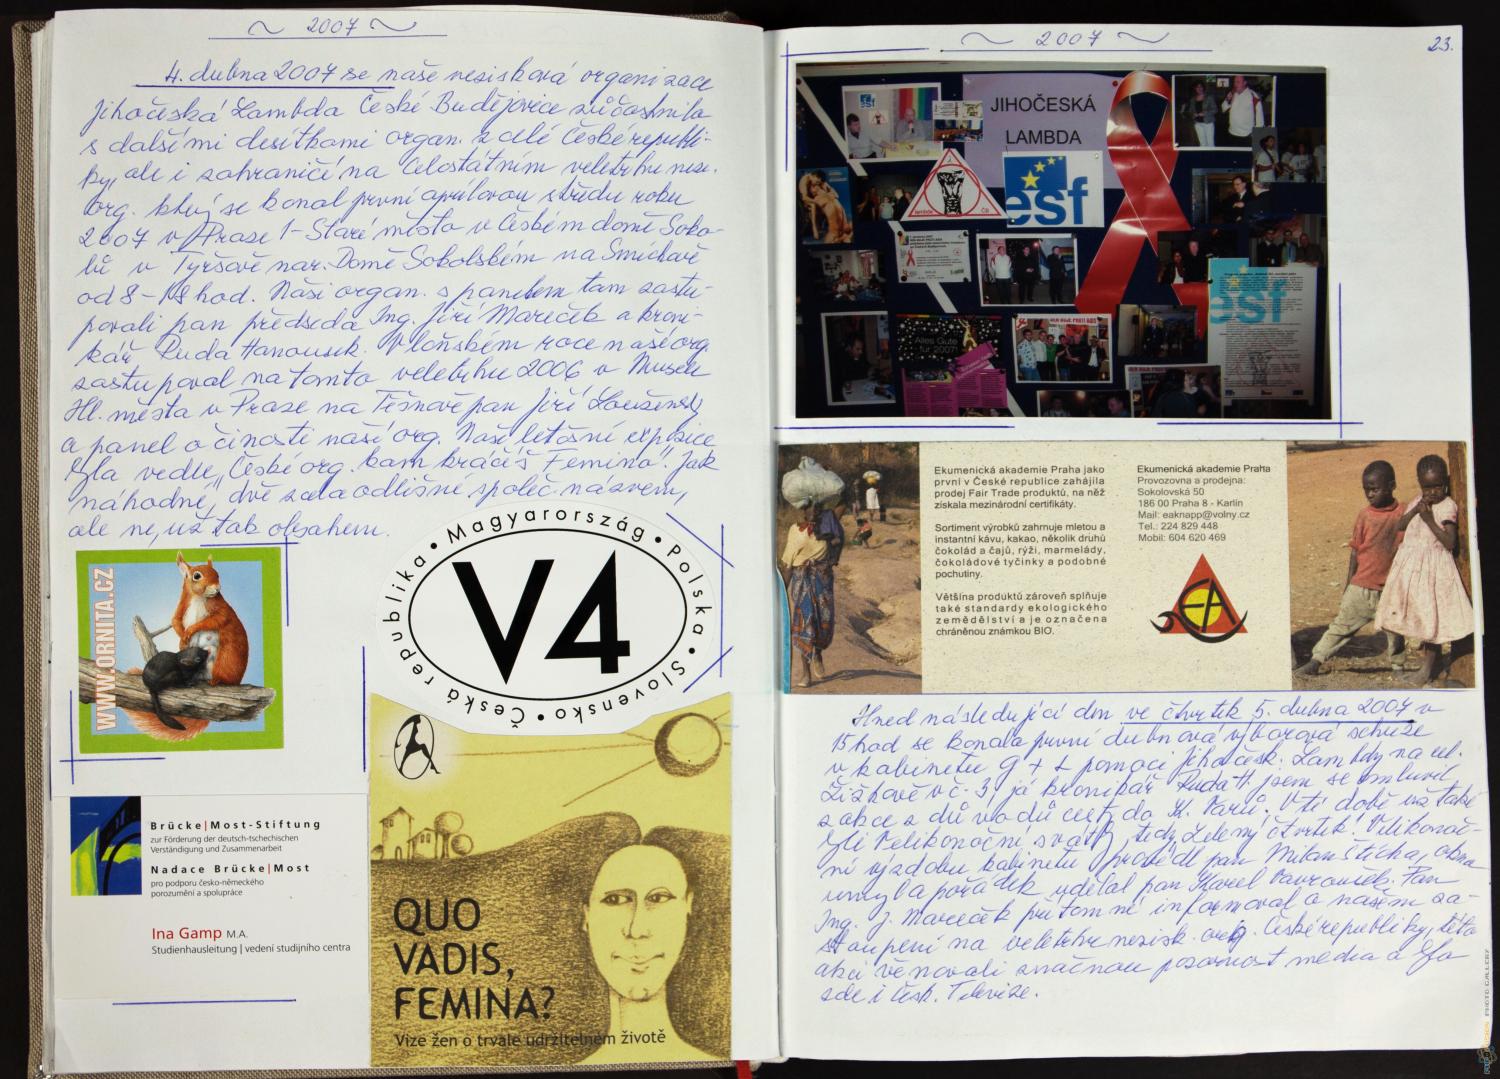 ~ 2007 ~
4. dubna 2007 se naše nezisková organizace
Jihočeská Lambda České Budějovice zúčastnila
s dalšími desítkami organ. z celé České republi-
ky, ale i zahraničí na Celostátním veletrhu nezi.
org. který se konal první aprílovou středu roku
2007 v Praze 1 - Staré město v Českém domě Soko-
lů v Tyršově nar. Domě Sokolském na Smíchově
od 8 - 18 hod. Naši organ. s panelem tam zastu-
povali pan předseda Ing. Jiří Mareček a kroni-
kář Ruda Hanousek. V loňském roce naší org.
zastupoval na tomto veletrhu 2006 v Museu
Hl. města v Praze na Těšnově pan Jiří
a panel o činosti naší org. Naše letošní expozice
byla vedle „České org. kam kráčíš Femino". Jak
náhodné, dvě zcela odlišné společ. názvem,
ale ne, už tak obsahem.
WWW.ORNITA.CZ
V4
Česká republika • Magyarország • Polska • Slovensko •
Brücke|Most-Stiftung
zur Förderung der deutsch-tschechischen
Verständigung und Zusammenarbeit
Nadace Brücke|Most
pro podporu česko-německého
porozumění a spolupráce
Ina Gamp M.A.
Studienhausleitung | vedení studijního centra
QUO
VADIS,
FEMINA?
Vize žen o trvale udržitelném životě
~ 2007 ~
23.
JIHOČESKÁ
LAMBDA
esf
esf
Alles Gute
für 2007!
Ekumenická akademie Praha jako
první v České republice zahájila
prodej Fair Trade produktů, na něž
získala mezinárodní certifikáty.
Sortiment výrobků zahrnuje mletou a
instantní kávu, kakao, několik druhů
čokolád a čajů, rýži, marmelády,
čokoládové tyčinky a podobné
pochutiny.
Většina produktů zároveň splňuje
také standardy ekologického
zemědělství a je označena
chráněnou známkou BIO.
Ekumenická akademie Praha
Provozovna a prodejna:
Sokolovská 50
186 00 Praha 8 - Karlín
Mail: eaknapp@volny.cz
Tel.: 224 829 448
Mobil: 604 620 469
Hned následující den ve čtvrtek 5. dubna 2007 v
15 hod se konala první dubnová výborová schůze
v kabinetu G + L pomoci Jihočesk. Lambdy na ul.
Žižkově v č. 3, já kronikář Ruda H. jsem se omluvil
z akce z důvodů cesty do K. Varů. V té době už také
byli Velikonoční svátky, tedy Zelený čtvrtek. Velikonoč-
ní výzdobu kabinetu provedl pan Milan Štícha, okna
umyl a pořádek udělal pan Karel Vavroušek. Pan
Ing. J. Mareček přítomné informoval o našem za-
stoupení na veletrhu nezisk. org. České republiky, této
akci věnovali značnou pozornost média a byla
zde i Česk. Televize.